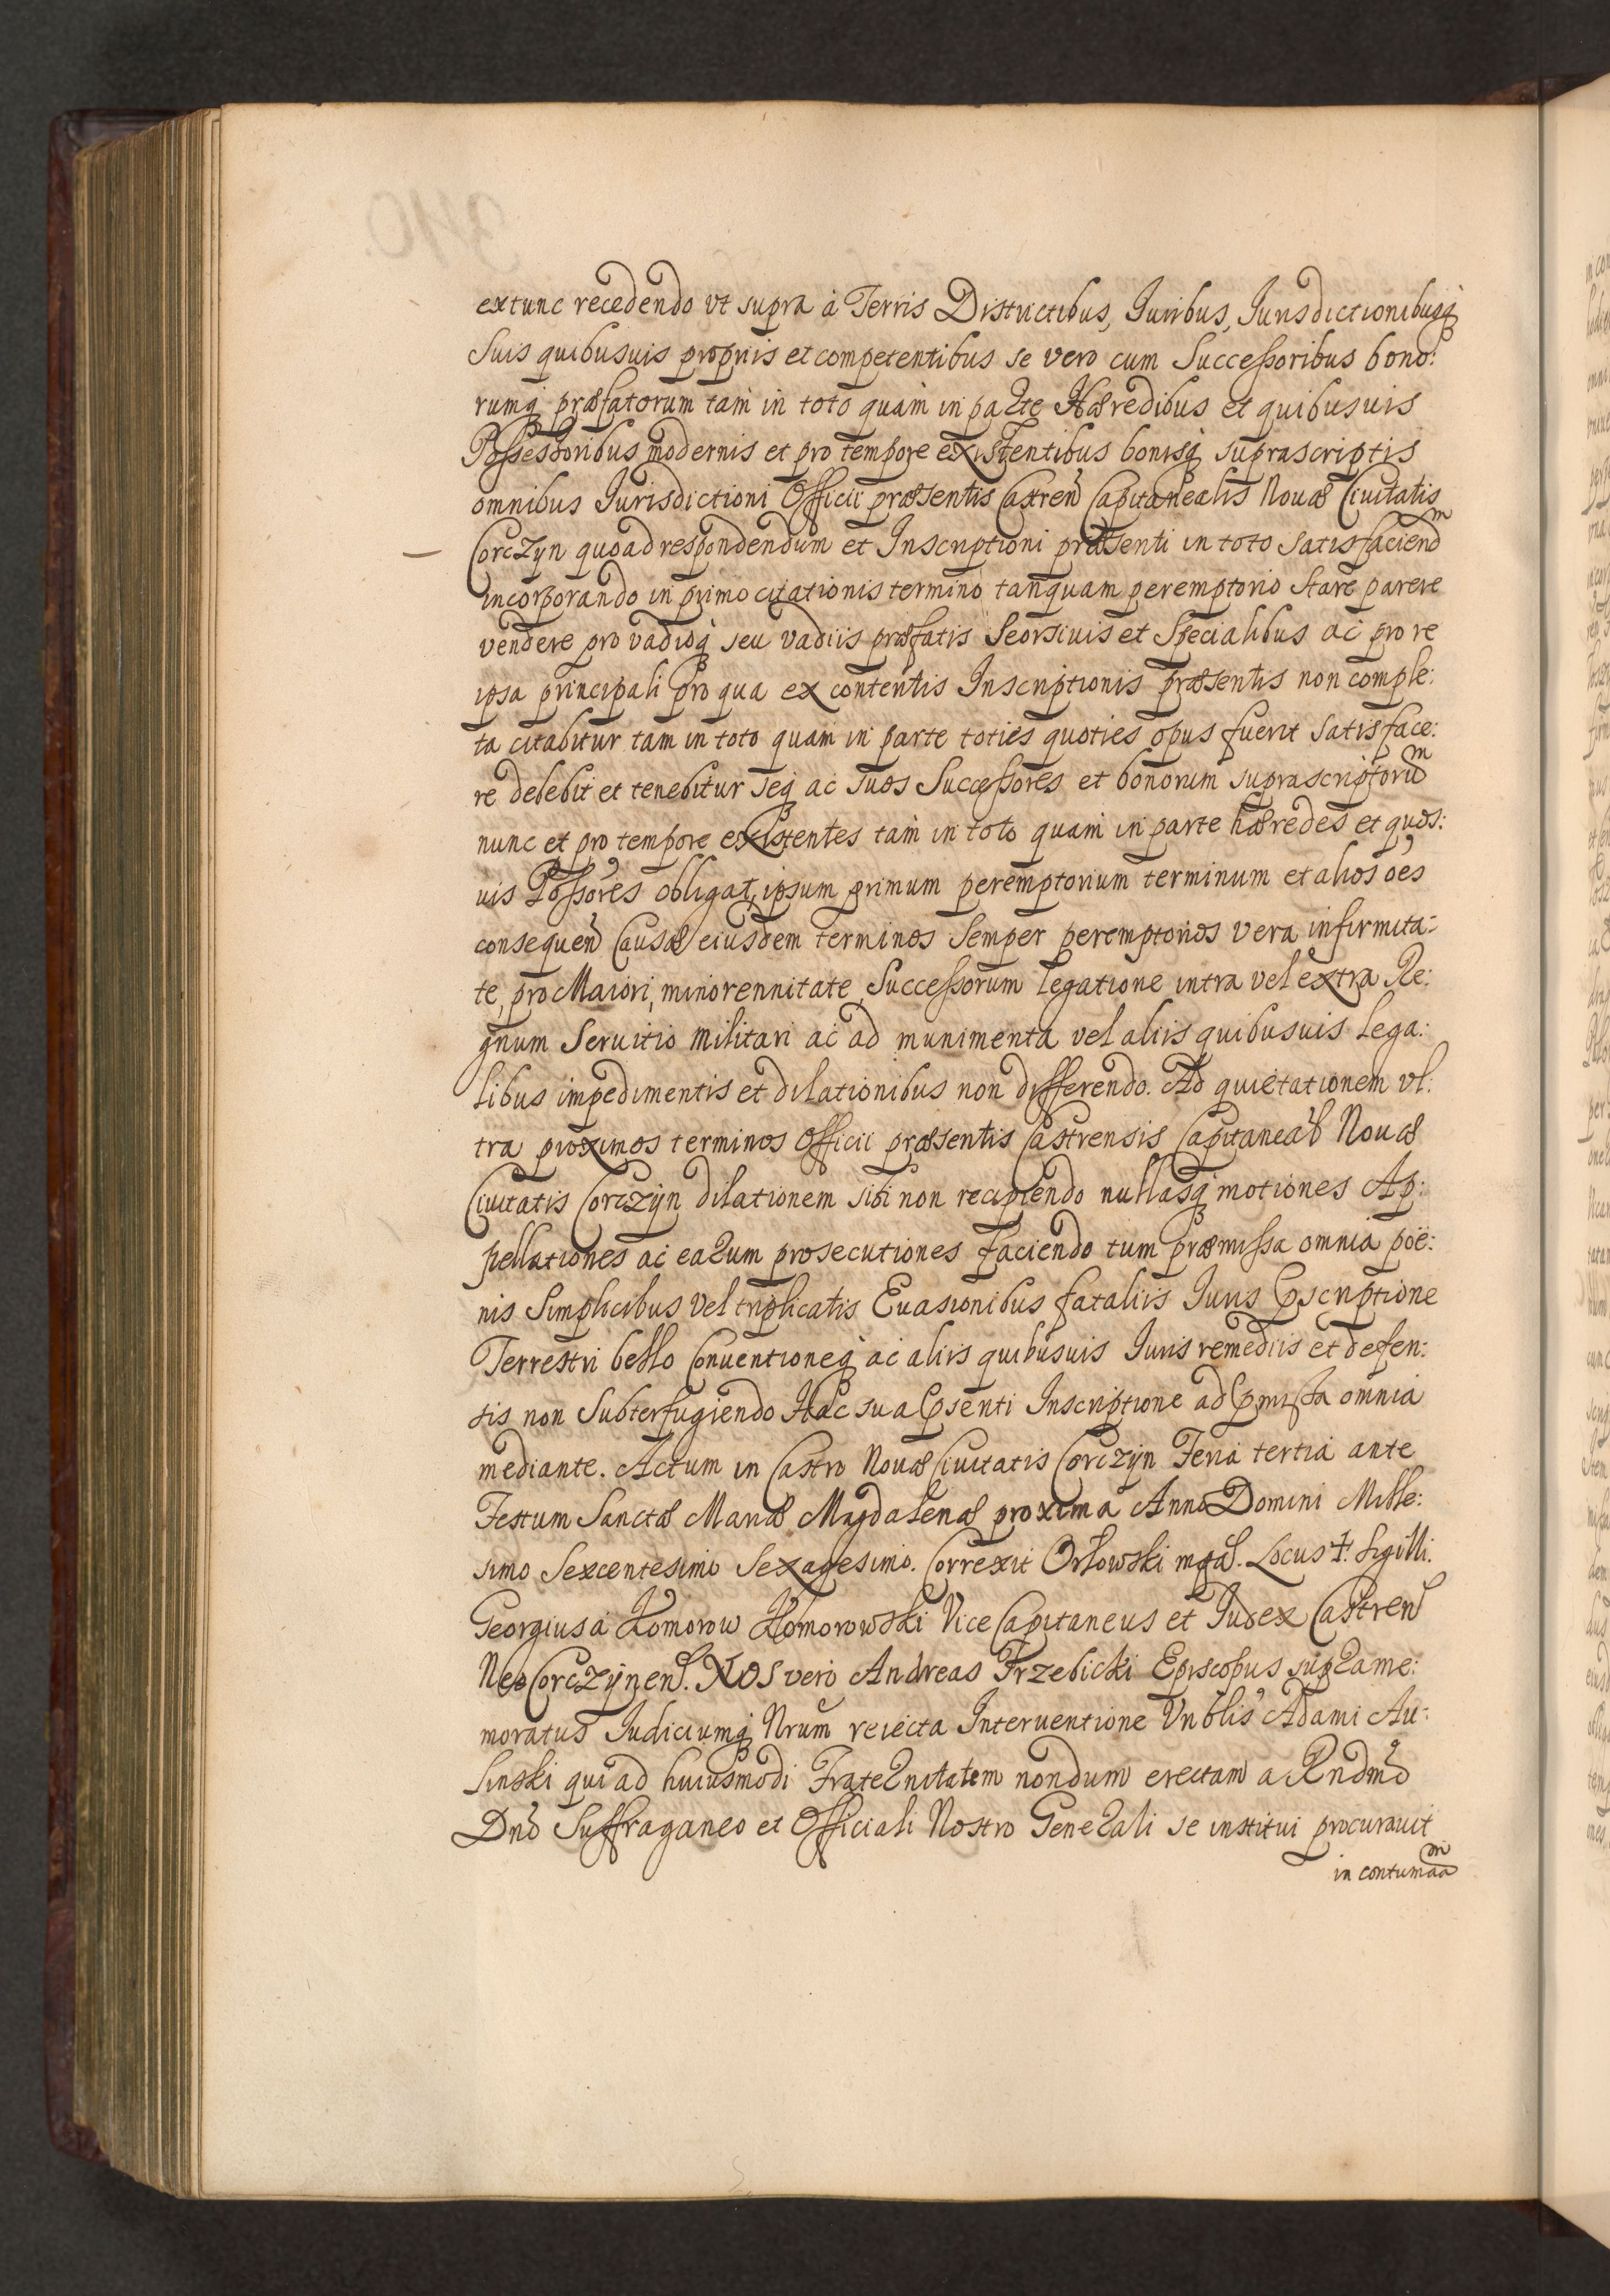 extunc recedendo vt supra à Terris Districtibus, Iuribus, Iurisdictionibusq́
Suis quibusuis proprijs et competentibus se vero cum Successoribus bono:
rumq́ præfatorum tàm in toto quàm in parte Hæredibus et quibusuis
Possessoribus modernis et pro tempore existentibus bonisq́ suprascriptis
omnibus Iurisdictioni Officii præsentis Castren̄ Capitanealis Nouæ Ciuitatis
Corczyn quoad respondendum et Inscriptioni præsenti in toto satisfaciend̄m
incorporando in primo citationis termino tanquam peremptorio stare parere
vendere pro vadioq́ seu vadiis præfatis Seorsiuis et Specialibus ac pro re
ipsa principali pro qua ex contentis Inscriptionis præsentis non comple:
ta citabitur tam in toto quam in parte toties quoties opus fuerit satisface:
re debebit et tenebitur seq́ ac suos Successores et bonorum suprascriptorūm
nunc et pro tempore existentes tàm in toto quàm in parte hæredes et quos:
uis Possores obligat, ipsum primum peremptorium terminum et alios oēs
consequen̄ Causæ eiusdem terminos semper peremptorios vera infirmita:
te, pro Maiori, minorennitate, Successorum legatione intra vel extra Re:
gnum Seruitio militari ac ad munimenta vel aliis quibusuis lega:
libus impedimentis et dilationibus non differendo. Ad quietationem vl:
tra proximos terminos Officii præsentis Castrensis Capitaneał Nouæ
Ciuitatis Corczyn dilationem sibi non recipiendo nullasq́ motiones Ap:
pellationes ac earum prosecutiones faciendo tum præmissa omnia poë:
nis simplicibus vel triplicatis Euasionibus fataliis Iuris Pscriptione
Terrestri bello Conuentioneq́ ac aliis quibusuis Iuris remediis et defen:
sis non Subterfugiendo Hac sua Psenti Inscriptione ad Pmissa omnia
mediante. Actum in Castro Nouæ Ciuitatis Corczyn Feria tertia ante
Festum Sanctæ Mariæ Magdalenæ proxima Anno Domini Mille:
simo Sexcentesimo Sexagesimo. Correxit Orłowski mga. Locus ☩. Sigilli.
Georgius à Komorow Komorowski Vice Capitaneus et Iudex Castren̄
Neo Corczynen̄. Nos vero Andreas Trzebicki Episcopus suprame:
moratus Iudiciumq́ Nrum reiecta Interuentione Vnblis Adami Au:
sinski qui ad huiusmodi Fraternitatem nondum erectam a Rndmō
Dnō Suffraganeo et Officiali Nostro Generali se institui procurauit
in contumaām